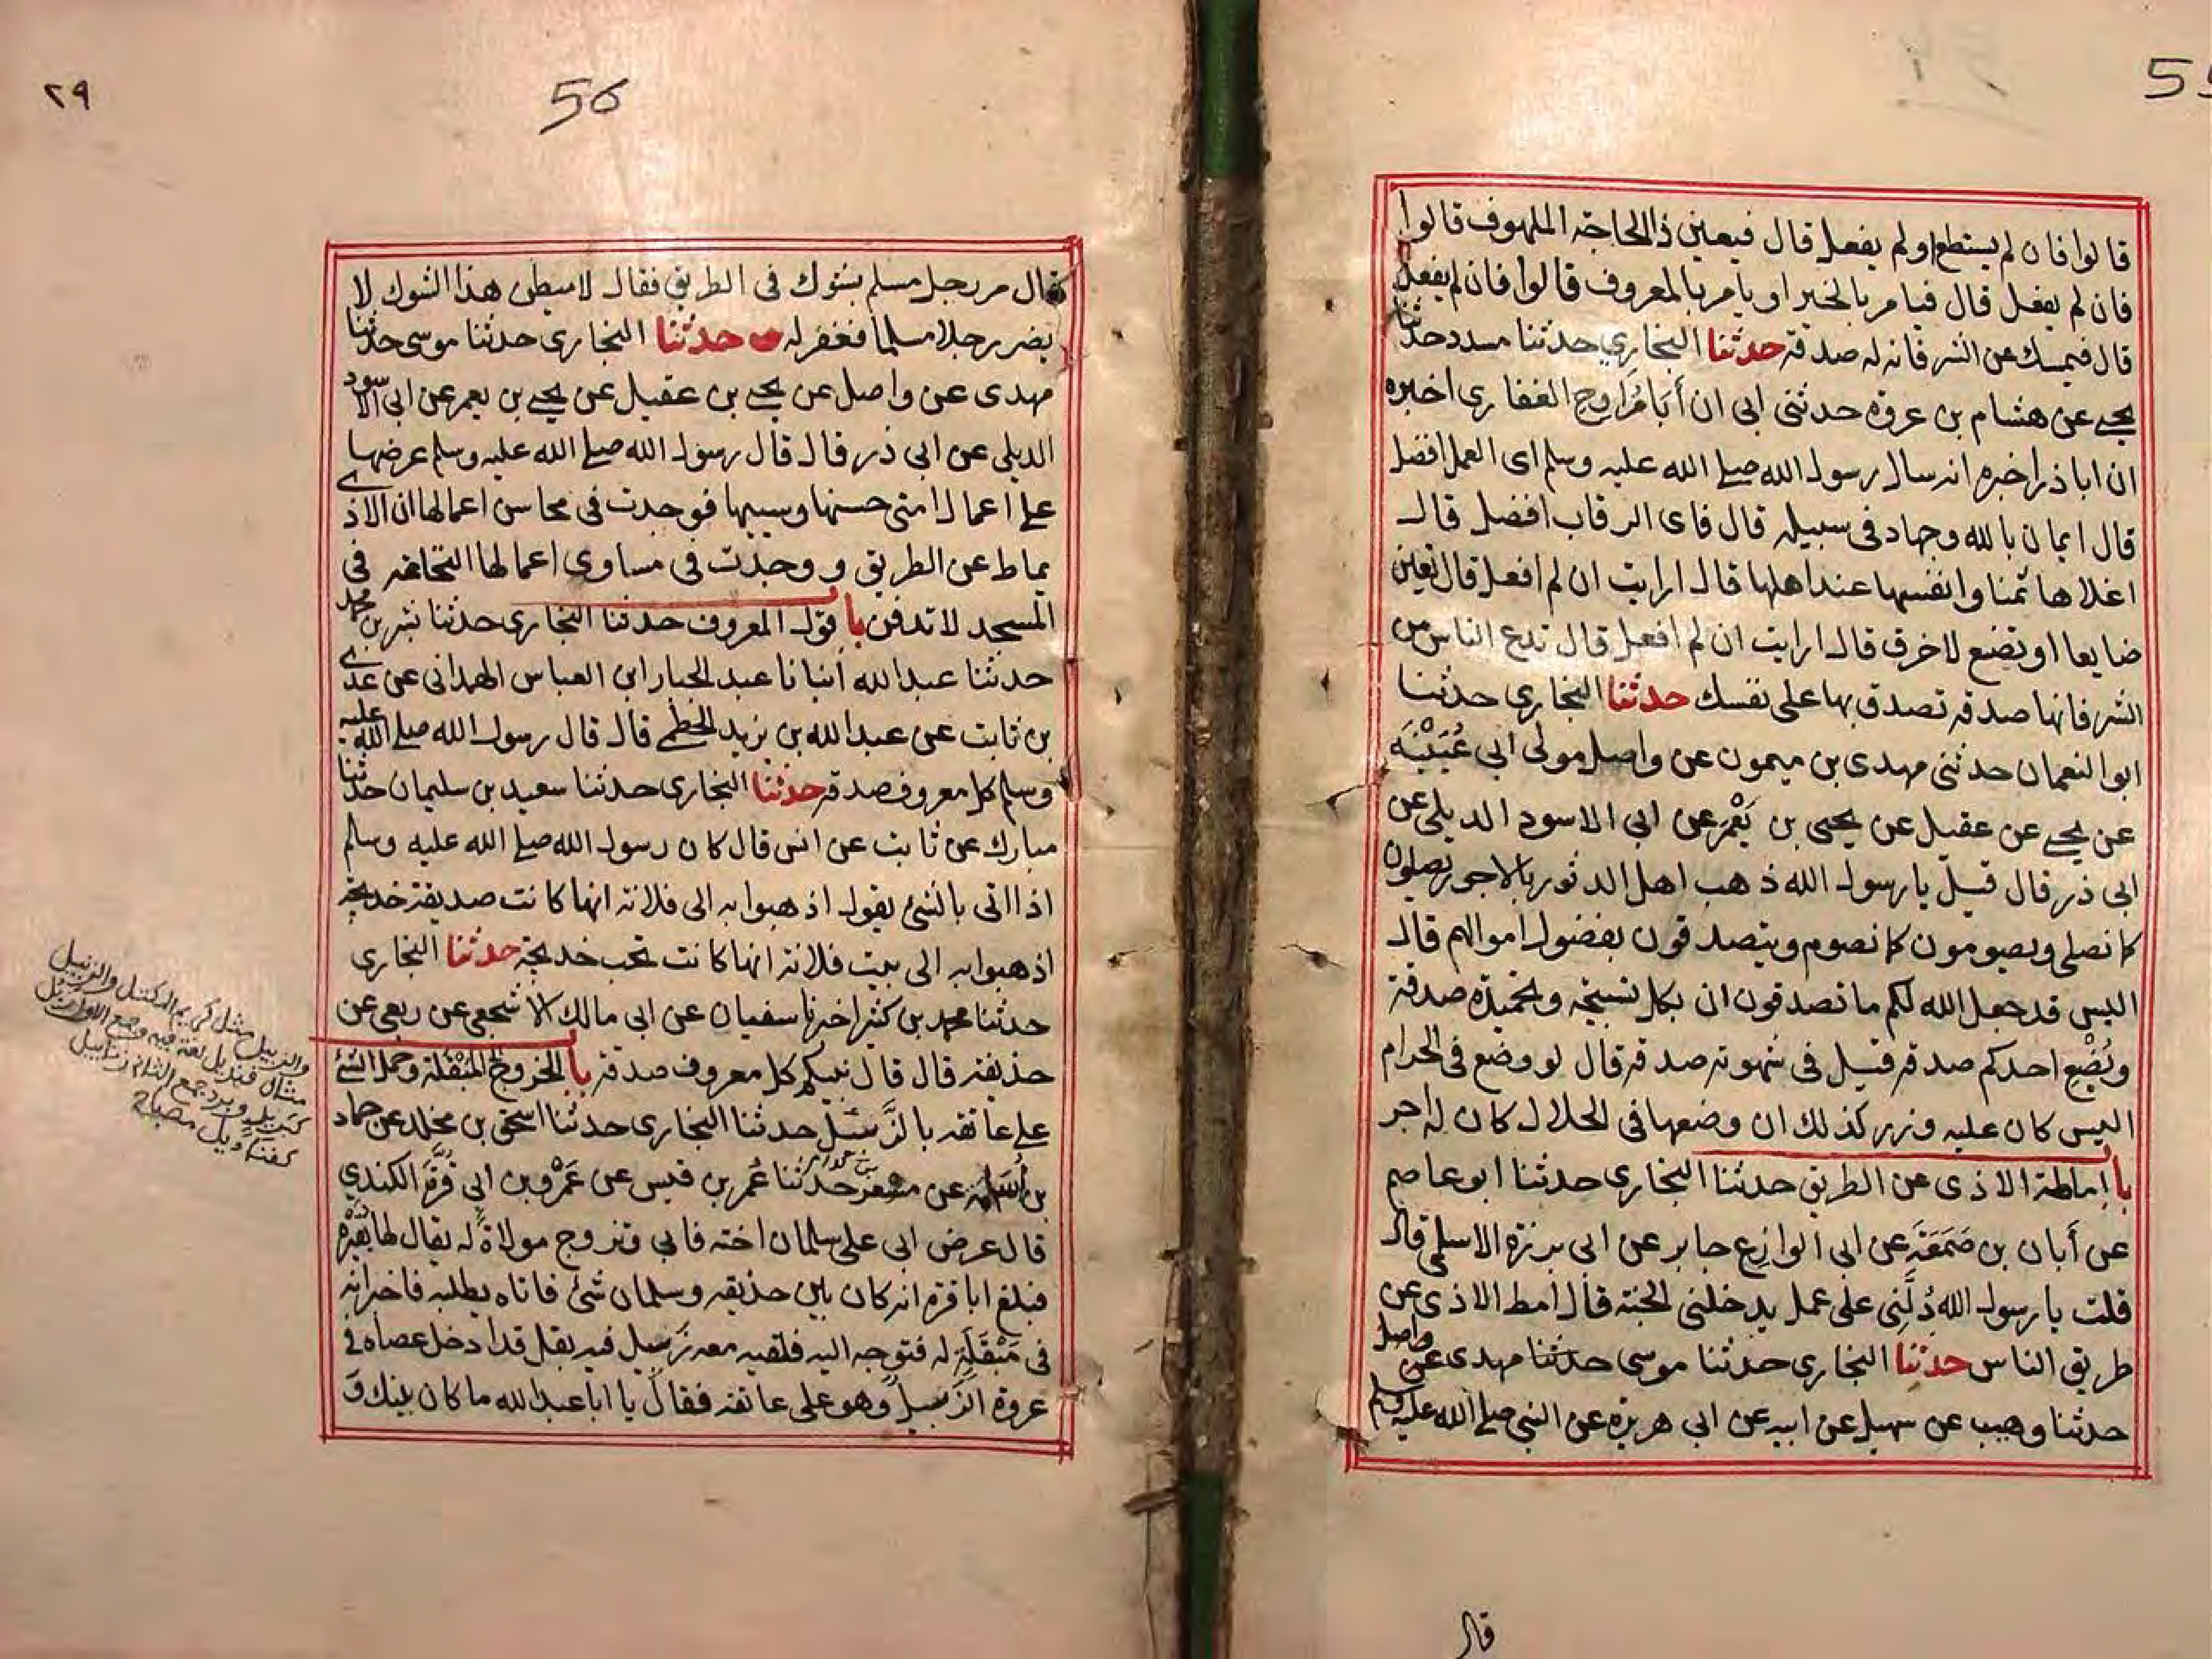 55
قالوا فان لم يستطع او لم يفعل قال فيعين ذا الحاجة الملهوف قالوا
فان لم يفعل قال فيامر بالخير او يامر بالمعروف قالوا فان لم يفعل
قال فيمسك عن الشر فانه له صدقة حدثنا البخاري حدثنا مسدد حدثنا
يحيے عن هشام بن عروة حدثنى ابى ان أَبَا مُرَاوِحِ الغفارى اخبره
ان اباذر اخبره انه سال رسول الله صلے الله عليه وسلم اى العمل افضل
قال ايمان بالله وجهاد فى سبيله قال فاى الرقاب افضل قال
اغلاها ثمنا وانفسها عند اهلها قال ارايت ان لم افعل قال تعين
ضايعا او تصنع لاخرق قال ارايت ان لم افعل قال تدع الناس من
الشر فانها صدقة تصدق بها على نفسك حدثنا البخارى حدثنا
ابو النعمان حدثنى مهدى بن ميمون عن واصل مولى ابى عُيَيْنَه
عن يحيے عن عقيل عن يحيى بن يَعْمَر عن ابى الاسود الديلى عن
ابى ذر قال قيل يا رسول الله ذهب اهل الدثور بالاجر يصلون
كما نصلى ويصومون كما نصوم ويتصدقون بفضول اموالهم قال
اليس قد جعل الله لكم ما تصدقون ان بكل تسبيحة وتحميدة صدقة
وبُضْع احدكم صدقة قيل فى شهوته صدقة قال لو وضع فى الحرام
اليس كان عليه وزر كذلك ان وضعها فى الحلال كان له اجر
باب اماطة الاذى عن الطريق حدثنا البخارى حدثنا ابو عاصم
عن أبان بن صَمَعَة عن ابى الوازع جابر عن ابى برزة الاسلمى قال
قلت يا رسول الله دُلَّنِى على عمل يدخلنى الجنة قال امط الاذى عن
طريق الناس حدثنا البخارى حدثنا موسى حدثنا مهدى عن واصل
حدثنا وهيب عن سهيل عن ابيه عن ابى هريرة عن النبى صلے الله عليه وسلم
قال
٢٩
56
قال مر رجل مسلم بشوك فى الطريق فقال لاميطن هذا الشوك لا
يضر رجلا مسلما فغفر له حدثنا البخارى حدثنا موسى حدثنا
مهدى عن واصل عن يحيے بن عقيل عن يحيے بن يعمر عن ابى الاسود
الديلى عن ابى ذر قال قال رسول الله صلے الله عليه وسلم عرضها
علے اعمال امتى حسنها وسييها فوجدت فى محاسن اعمالها ان الاذى
يماط عن الطريق ووجدت فى مساوى اعمالها النخاعة فى
المسجد لا تدفن باب قول المعروف حدثنا البخارى حدثنا بشر بن محمد
حدثنا عبدالله أنبانا عبدالجبار ابن العباس الهمدانى عن عدى
بن ثابت عن عبدالله بن يزيد الخطمے قال قال رسول الله صلے الله عليه
وسلم كل معروف صدقة حدثنا البخارى حدثنا سعيد بن سليمان حدثنا
مبارك عن ثابت عن انس قال كان رسول الله صلے الله عليه وسلم
اذا اتى بالشئ يقول اذهبوا به الى فلانة انها كانت صديقة خديجة
اذهبوا به الى بيت فلانة انها كانت تحب خديجة حدثنا البخارى
حدثنا محمد بن كثير اخبرنا سفيان عن ابى مالك الاشجعى عن ربعى عن
حذيفة قال قال نبيكم كل معروف صدقة باب الخروج المَبْقَلة وحمل الشئ
علے عاتقه بالزَّبيل حدثنا البخارى حدثنا اسحق بن مخلد عن حماد
بن أسامة عن مسعر حدثنا عُمر بن قيس عن عَمْرو بن ابى قُرَّة الكندي
قال عرض ابى على سلمان اخته فابى وتزوج مولاةً له يقال لها بُقَيْرَة
فبلغ ابا قرة انه كان بين حذيفة وسلمان شئ فاتاه يطلبه فاخبر انه
فى مَبْقَلَةٍ له فتوجه اليه فلقيه معه زبيل فيه بقل قد ادخل عصاه فى
عروة الزَّبيل وهو على عاتقه فقال يا ابا عبدالله ما كان بينك و
والزبيل مثل كريم المكتل والزنبيل
مثال قنديل لغة فيه وجمع الاول زبل
مثل بريد وبرد وجمع الثانى زنابيل
كقناديل مصباح